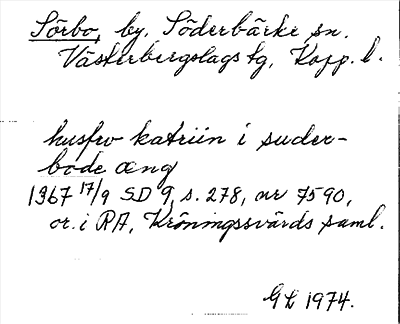 Sörbo, by. Söderbärke sn.
Västerbergslags tg, Kopp. l.
husfro katriin i suder-
bode æng
1367 17/9 SD 9, s. 278, nr 7590,
or. i RA, Kröningssvärds saml.
GL 1974.